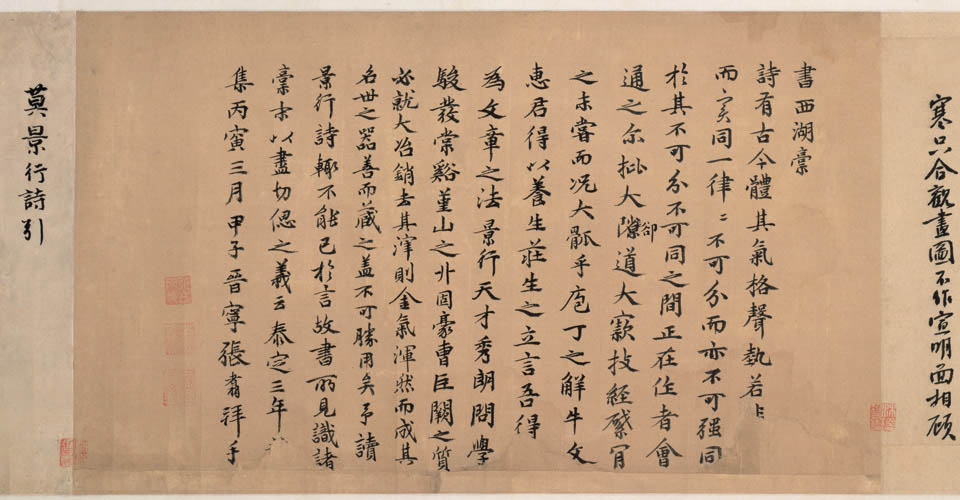 寒只合觀畫圖不作宣明面相顧
書西湖藁
詩有古今體其氣格聲埶若
而實同一律〻不可分而亦不可强同
於其不可分不可同之間正在任者會
通之尓批大隙卻道大窾技經綮肯
之未嘗而况大軱乎庖丁之解牛文
惠君得以養生莊生之立言吾得
為文章之法景行天才秀朗問學
駿發棠谿堇山之外固豪曹巨闕之質
必就大冶銷去其滓則金氣渾然而成其
名世之器善而蔵之盖不可勝用矣予讀
景行詩輒不能已於言故書所見識諸
藁末以盡切偲之義云泰定三年
集丙寅三月甲子晉寧張翥拜手
莫景行詩引